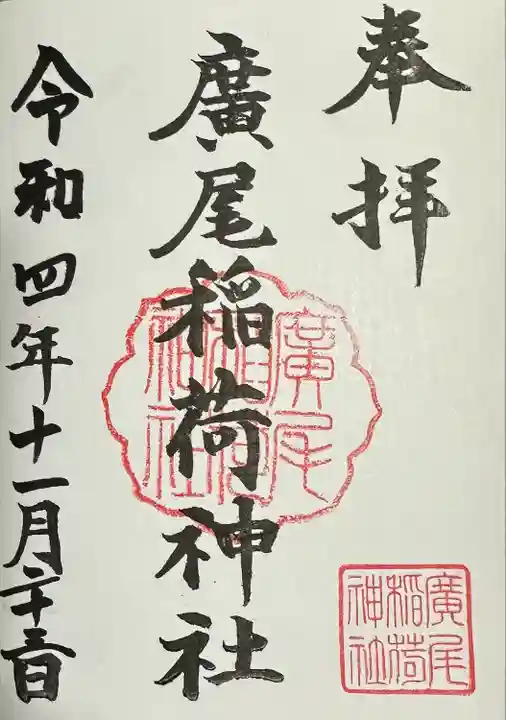 奉拝
廣尾稲荷神社
令和四年十一月二十三日
廣尾
稲荷
神社
廣尾
稲荷
神社